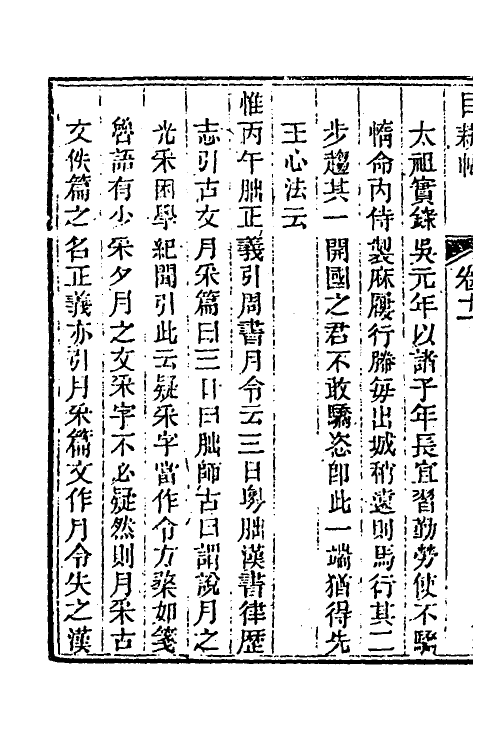 目耕帖
卷十一
太祖實錄吳元年以諸子年長宜習勤勞使不驕
惰命內侍製麻屨行縢每出城稍遠則馬行其二
步趨其一開國之君不敢驕恣卽此一端猶得先
王心法云
惟丙午朏正義引周書月令云三日粤朏漢書律歷
志引古文月采篇曰三日曰朏師古曰謂說月之
光采困學紀聞引此云疑采字當作令方楘如箋
魯語有少采夕月之文采字不必疑然則月采古
文佚篇之名正義亦引月采篇文作月令失之漢